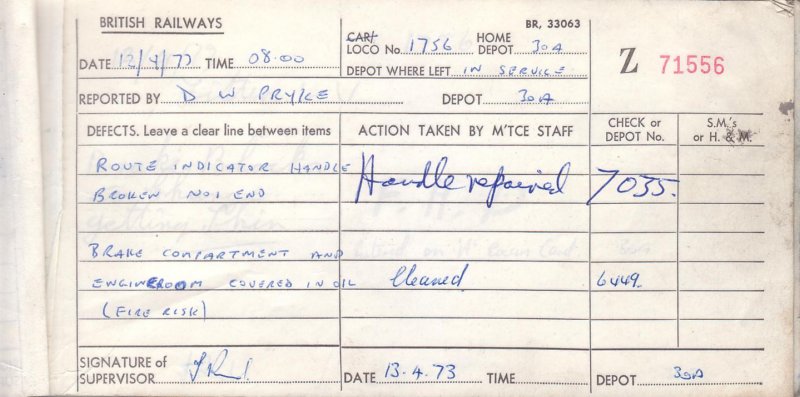 BRITISH RAILWAYS
BR, 33063
DATE 12/4/73 TIME 08.00
CAR/
LOCO No. 1756
HOME
DEPOT 30A
DEPOT WHERE LEFT IN SERVICE
Z 71556
REPORTED BY D W PRYKE DEPOT 30A
DEFECTS. Leave a clear line between items
ACTION TAKEN BY M'TCE STAFF
CHECK or
DEPOT No.
S.M.'s
or H. & M.
ROUTE INDICATOR HANDLE
BROKEN NO1 END
Handle repaired 7035.
BRAKE COMPARTMENT AND
ENGINEROOM COVERED IN OIL
Cleaned 6449.
(FIRE RISK)
SIGNATURE of
SUPERVISOR
DATE 13.4.73 TIME
DEPOT 30A